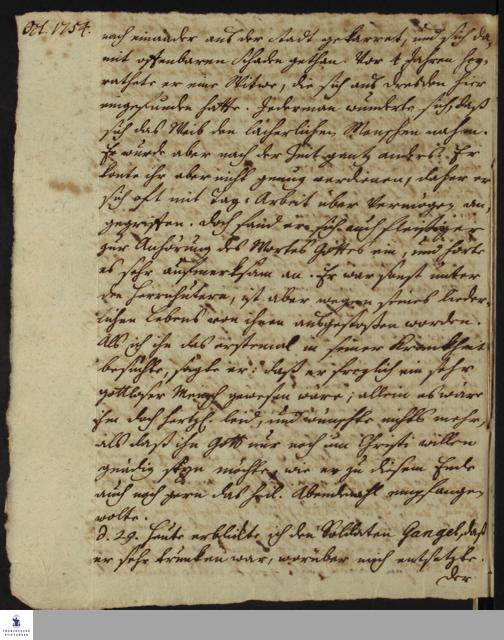 Oct. 1754.
nach einander aus der Stadt gekarret, und sich da-
mit offenbaren Schaden gethan. Vor 4 Jahren hey-
rathete er eine Witwe, die sich aus Dresden hier
eingefunden hatte. Jederman wunderte sich, daß
sich das Weib den lächerlichen Menschen nahm.
Er wurde aber nach der Zeit gantz anders. Er
konte ihr aber nicht genug verdienen, daher er
sich oft mit Tag-Arbeit über Vermögen an-
gegriffen. Doch fand er sich auch fleißiger
zur Anhörung des Wortes Gottes ein, und hörte
es sehr aufmerksam an. Er war sonst unter
den Herrnhutern, ist aber wegen seines lieder-
lichen Lebens von ihnen ausgestoßen worden.
Als ich ihn das erstemal in seiner Krankheit
besuchte, sagte er: daß er freylich ein sehr
gottloser Mensch gewesen wäre; allein es wäre
ihm doch hertzl. leid, und wünschte nichts mehr,
als daß ihm Gott nur noch um Christi willen
gnädig seyn möchte, wie er zu diesem Ende
auch noch gern das heil. Abendmahl empfangen
wolte.
d. 29. Heute erblickte ich den Soldaten Gangel, daß
er sehr trunken war, worüber mich entsetzte.
Der
FRANCKESCHE STIFTUNGEN